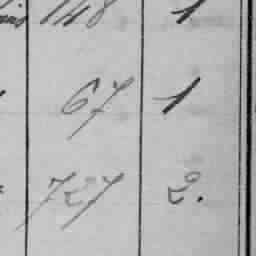 148 1
67 1
727 2.